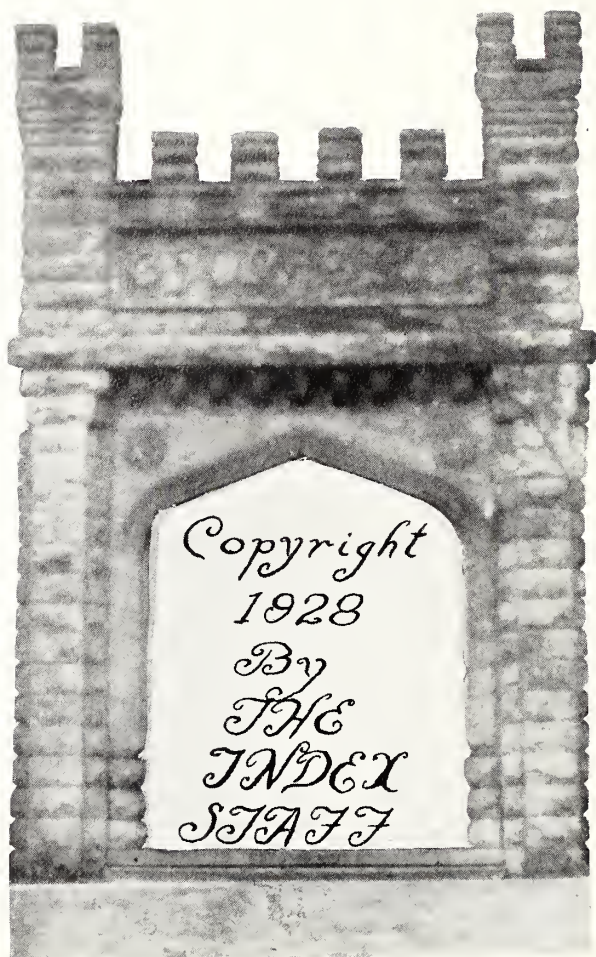 Copyright
1928
By
THE
INDEX
STAFF